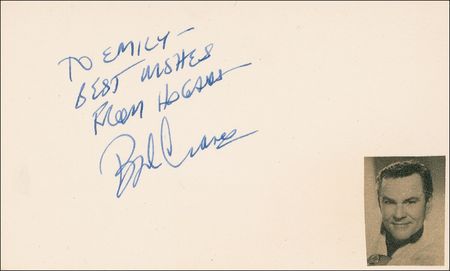 TO EMILY -
BEST WISHES
FROM HOGAN
Bob Crane